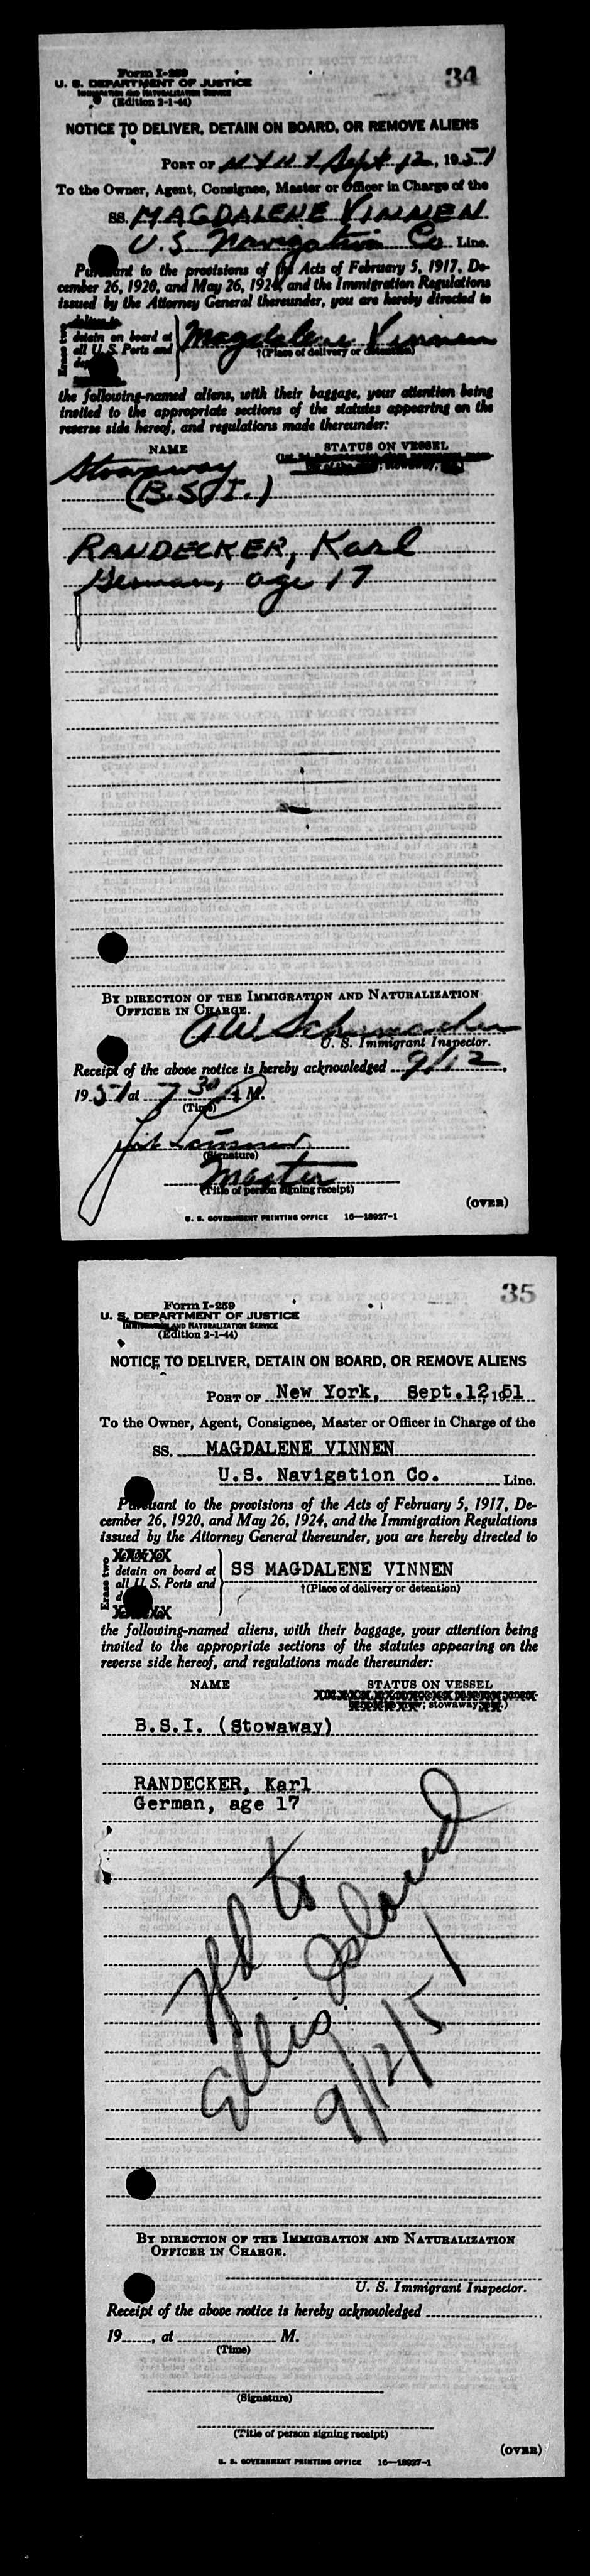 34
Form I-259
U. S. DEPARTMENT OF JUSTICE
IMMIGRATION AND NATURALIZATION SERVICE
(Edition 2-1-44)
NOTICE TO DELIVER, DETAIN ON BOARD, OR REMOVE ALIENS
PORT OF N.Y. N.Y. Sept 12, 1951
To the Owner, Agent, Consignee, Master or Officer in Charge of the
SS. MAGDALENE VINNEN
U.S. Navigation Co Line.
Pursuant to the provisions of the Acts of February 5, 1917, De-
cember 26, 1920, and May 26, 1924, and the Immigration Regulations
issued by the Attorney General thereunder, you are hereby directed to
Erase two
detain on board at
all U. S. Ports and
Magdalene Vinnen
†(Place of delivery or detention)
the following-named aliens, with their baggage, your attention being
invited to the appropriate sections of the statutes appearing on the
reverse side hereof, and regulations made thereunder:
NAME STATUS ON VESSEL
stowaway,
Stowaway
(B.S.I.)
RANDECKER, Karl
German, age 17
BY DIRECTION OF THE IMMIGRATION AND NATURALIZATION
OFFICER IN CHARGE.
A W Schumacher
U. S. Immigrant Inspector.
Receipt of the above notice is hereby acknowledged 9/12,
1951 at 7 30 A M.
(Time)
(Signature)
Master
(Title of person signing receipt)
(OVER)
U. S. GOVERNMENT PRINTING OFFICE 16—18927-1
35
Form I-259
U. S. DEPARTMENT OF JUSTICE
IMMIGRATION AND NATURALIZATION SERVICE
(Edition 2-1-44)
NOTICE TO DELIVER, DETAIN ON BOARD, OR REMOVE ALIENS
PORT OF New York, Sept.12, 1951
To the Owner, Agent, Consignee, Master or Officer in Charge of the
SS. MAGDALENE VINNEN
U.S. Navigation Co. Line.
Pursuant to the provisions of the Acts of February 5, 1917, De-
cember 26, 1920, and May 26, 1924, and the Immigration Regulations
issued by the Attorney General thereunder, you are hereby directed to
Erase two
detain on board at
all U. S. Ports and
SS MAGDALENE VINNEN
†(Place of delivery or detention)
the following-named aliens, with their baggage, your attention being
invited to the appropriate sections of the statutes appearing on the
reverse side hereof, and regulations made thereunder:
NAME STATUS ON VESSEL
stowaway
B.S.I. (Stowaway)
RANDECKER, Karl
German, age 17
to
Ellis Island
9/12/51
BY DIRECTION OF THE IMMIGRATION AND NATURALIZATION
OFFICER IN CHARGE.
U. S. Immigrant Inspector.
Receipt of the above notice is hereby acknowledged
19 , at M.
(Time)
(Signature)
(Title of person signing receipt)
(OVER)
U. S. GOVERNMENT PRINTING OFFICE 16—18927-1